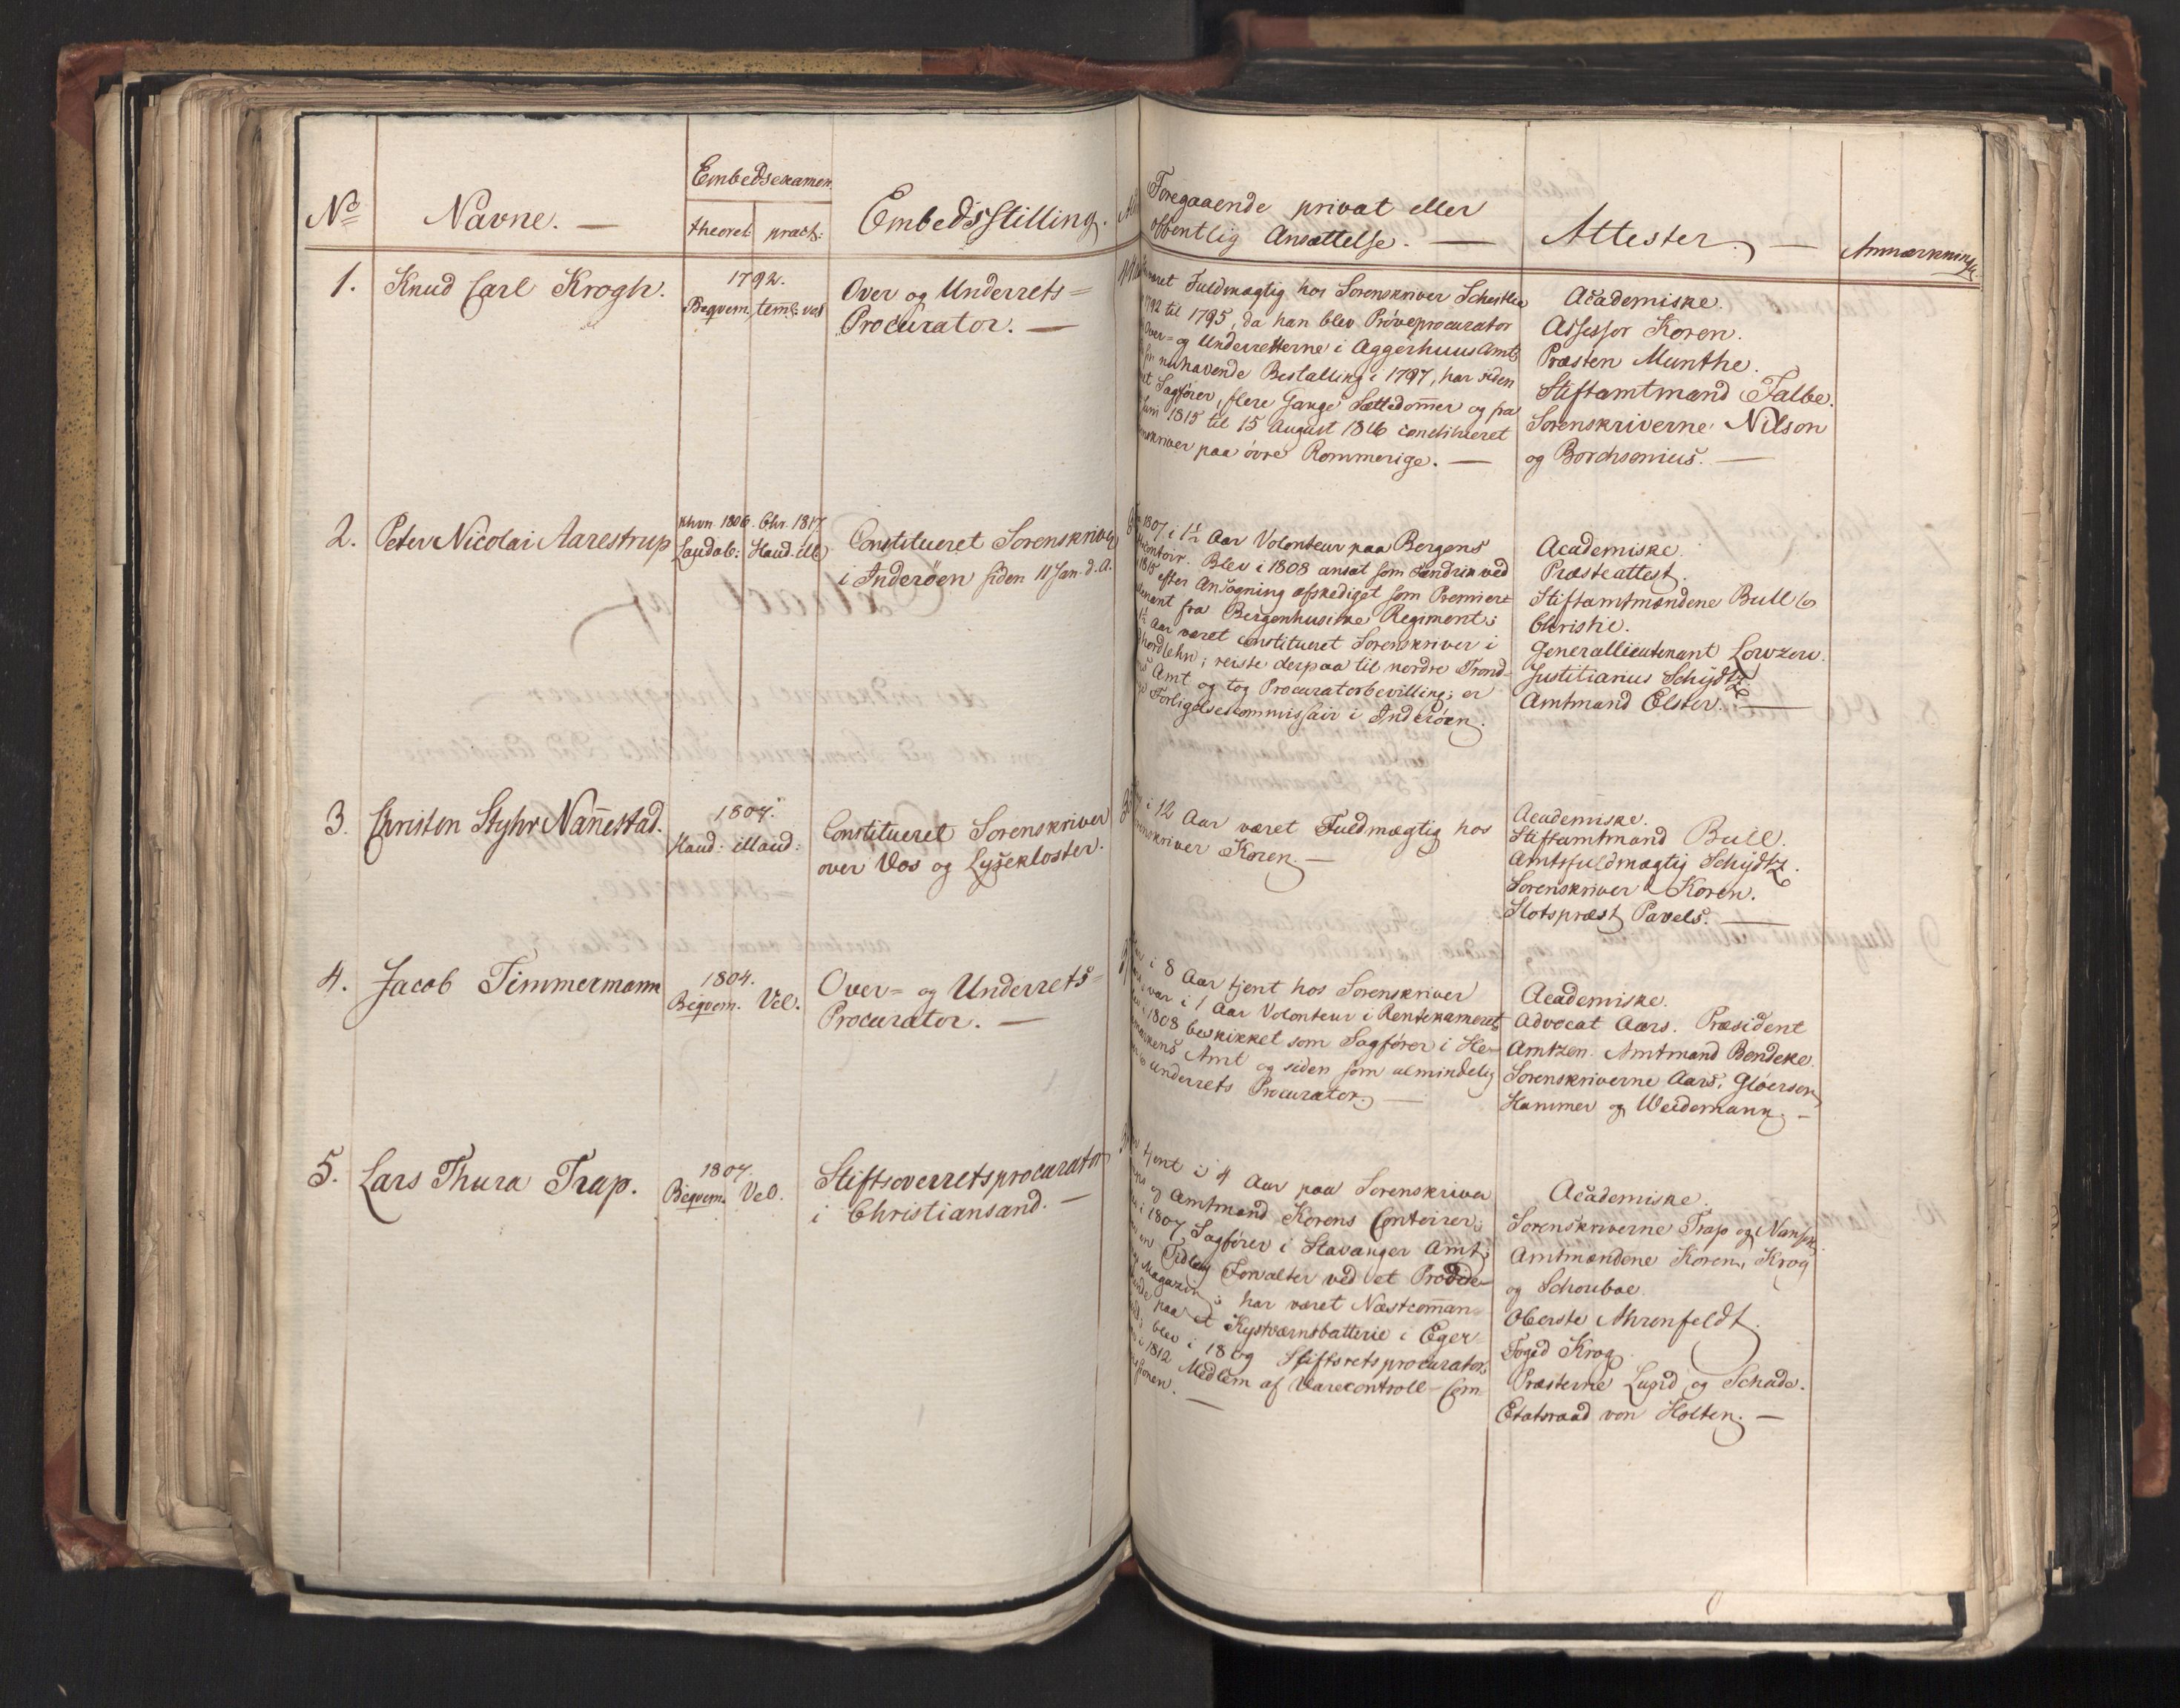 No
Navne. —
Embedsexamen.
theoret: pract:
Embedsstilling.
Foregaaende privat eller
offentlig Ansættelse. —
Attester. —
Anmærkninger.
1. Knud Carl Krogh.
1792.
Beqvem, teml: vel
Over og Underrets=
Procurator. —
været Fuldmægtig hos Sorenskriver
1792 til 1795, da han blev Prøveprocurator
Over= og Underretterne i Aggerhuus Amt
nuhavende Bestalling i 1797, har siden
Sagfører, flere Gange Sættedom̄er og fra
1815 til 15 August 1816 constitueret
paa øvre Rommerige. —
Academiske.
Assessor Koren.
Præsten Munthe.
Stiftamtmand Falbe.
Sorenskriverne Nilson
og Borchsenius. —
2. Peter Nicolai Aarestrup
Khvn. 1806. Chr. 1817.
Laudab: Haud ill:
Constitueret Sorenskriver
i Inderöen siden 11 Jan. d. A.
1807 i 1½ Aar Volonteur paa Bergens
Blev i 1808 ansat som Fendrik ved
1815 efter Ansøgning afskediget som Premier=
fra Bergenhusiske Regiment;
Aar været constitueret Sorenskriver i
reiste derpaa til nordre Trond=
Amt og tog Procuratorbevilling; er
Forligelsescommissair i Inderöen.
Academiske.
Præsteattest.
Stiftamtmændene Bull og
Christie.
Generallieutenant Lowzow.
Justitiarius Schydtz
Amtmand Elster. —
3. Christen Styhr Nan̄estad.
1807.
Haud: illaud:
Constitueret Sorenskriver
over Vos og Lysekloster.
i 12 Aar været Fuldmægtig hos
Koren. —
Academiske.
Stiftamtmand Bull.
Amtsfuldmægtig Schydtz.
Sorenskriver Koren.
Slotspræst Pavels. —
4. Jacob Timmermann
1804.
Beqvem. Vel.
Over= og Underrets=
Procurator. —
i 8 Aar tjent hos Sorenskriver
var i 1 Aar Volonteur i Rentekameret,
1808 beskikket som Sagfører i He=
Amt og siden som almindelig
underrets Procurator. —
Academiske.
Advocat Aars. Præsident
Amtzen. Amtmand Bendeke.
Sorenskriverne Aars, Glöersen,
Hammer og Weidemann. —
5. Lars Thura Trap.
1807.
Beqvem. Vel.
Stiftsoverretsprocurator
i Christiansand. —
tjent i 4 Aar paa Sorenskriver
og Amtmand Korens Contoirer;
i 1807 Sagfører i Stavanger Amt;
en Tidlang Forvalter ved et Provide=
Magazin; har været Næstcom̄an=
paa et Kystværnsbatterie i Eger=
blev i 1809 Stiftsretsprocurator,
i 1812 Medlem af Varecontroll-Com=
Academiske.
Sorenskriverne Trap og
Amtmændene Koren, Krog
og Schouboe.
Oberste Ahrenfeldt.
Foged Krog.
Præsterne Lupid og Schade.
Etatsraad von Holten. —